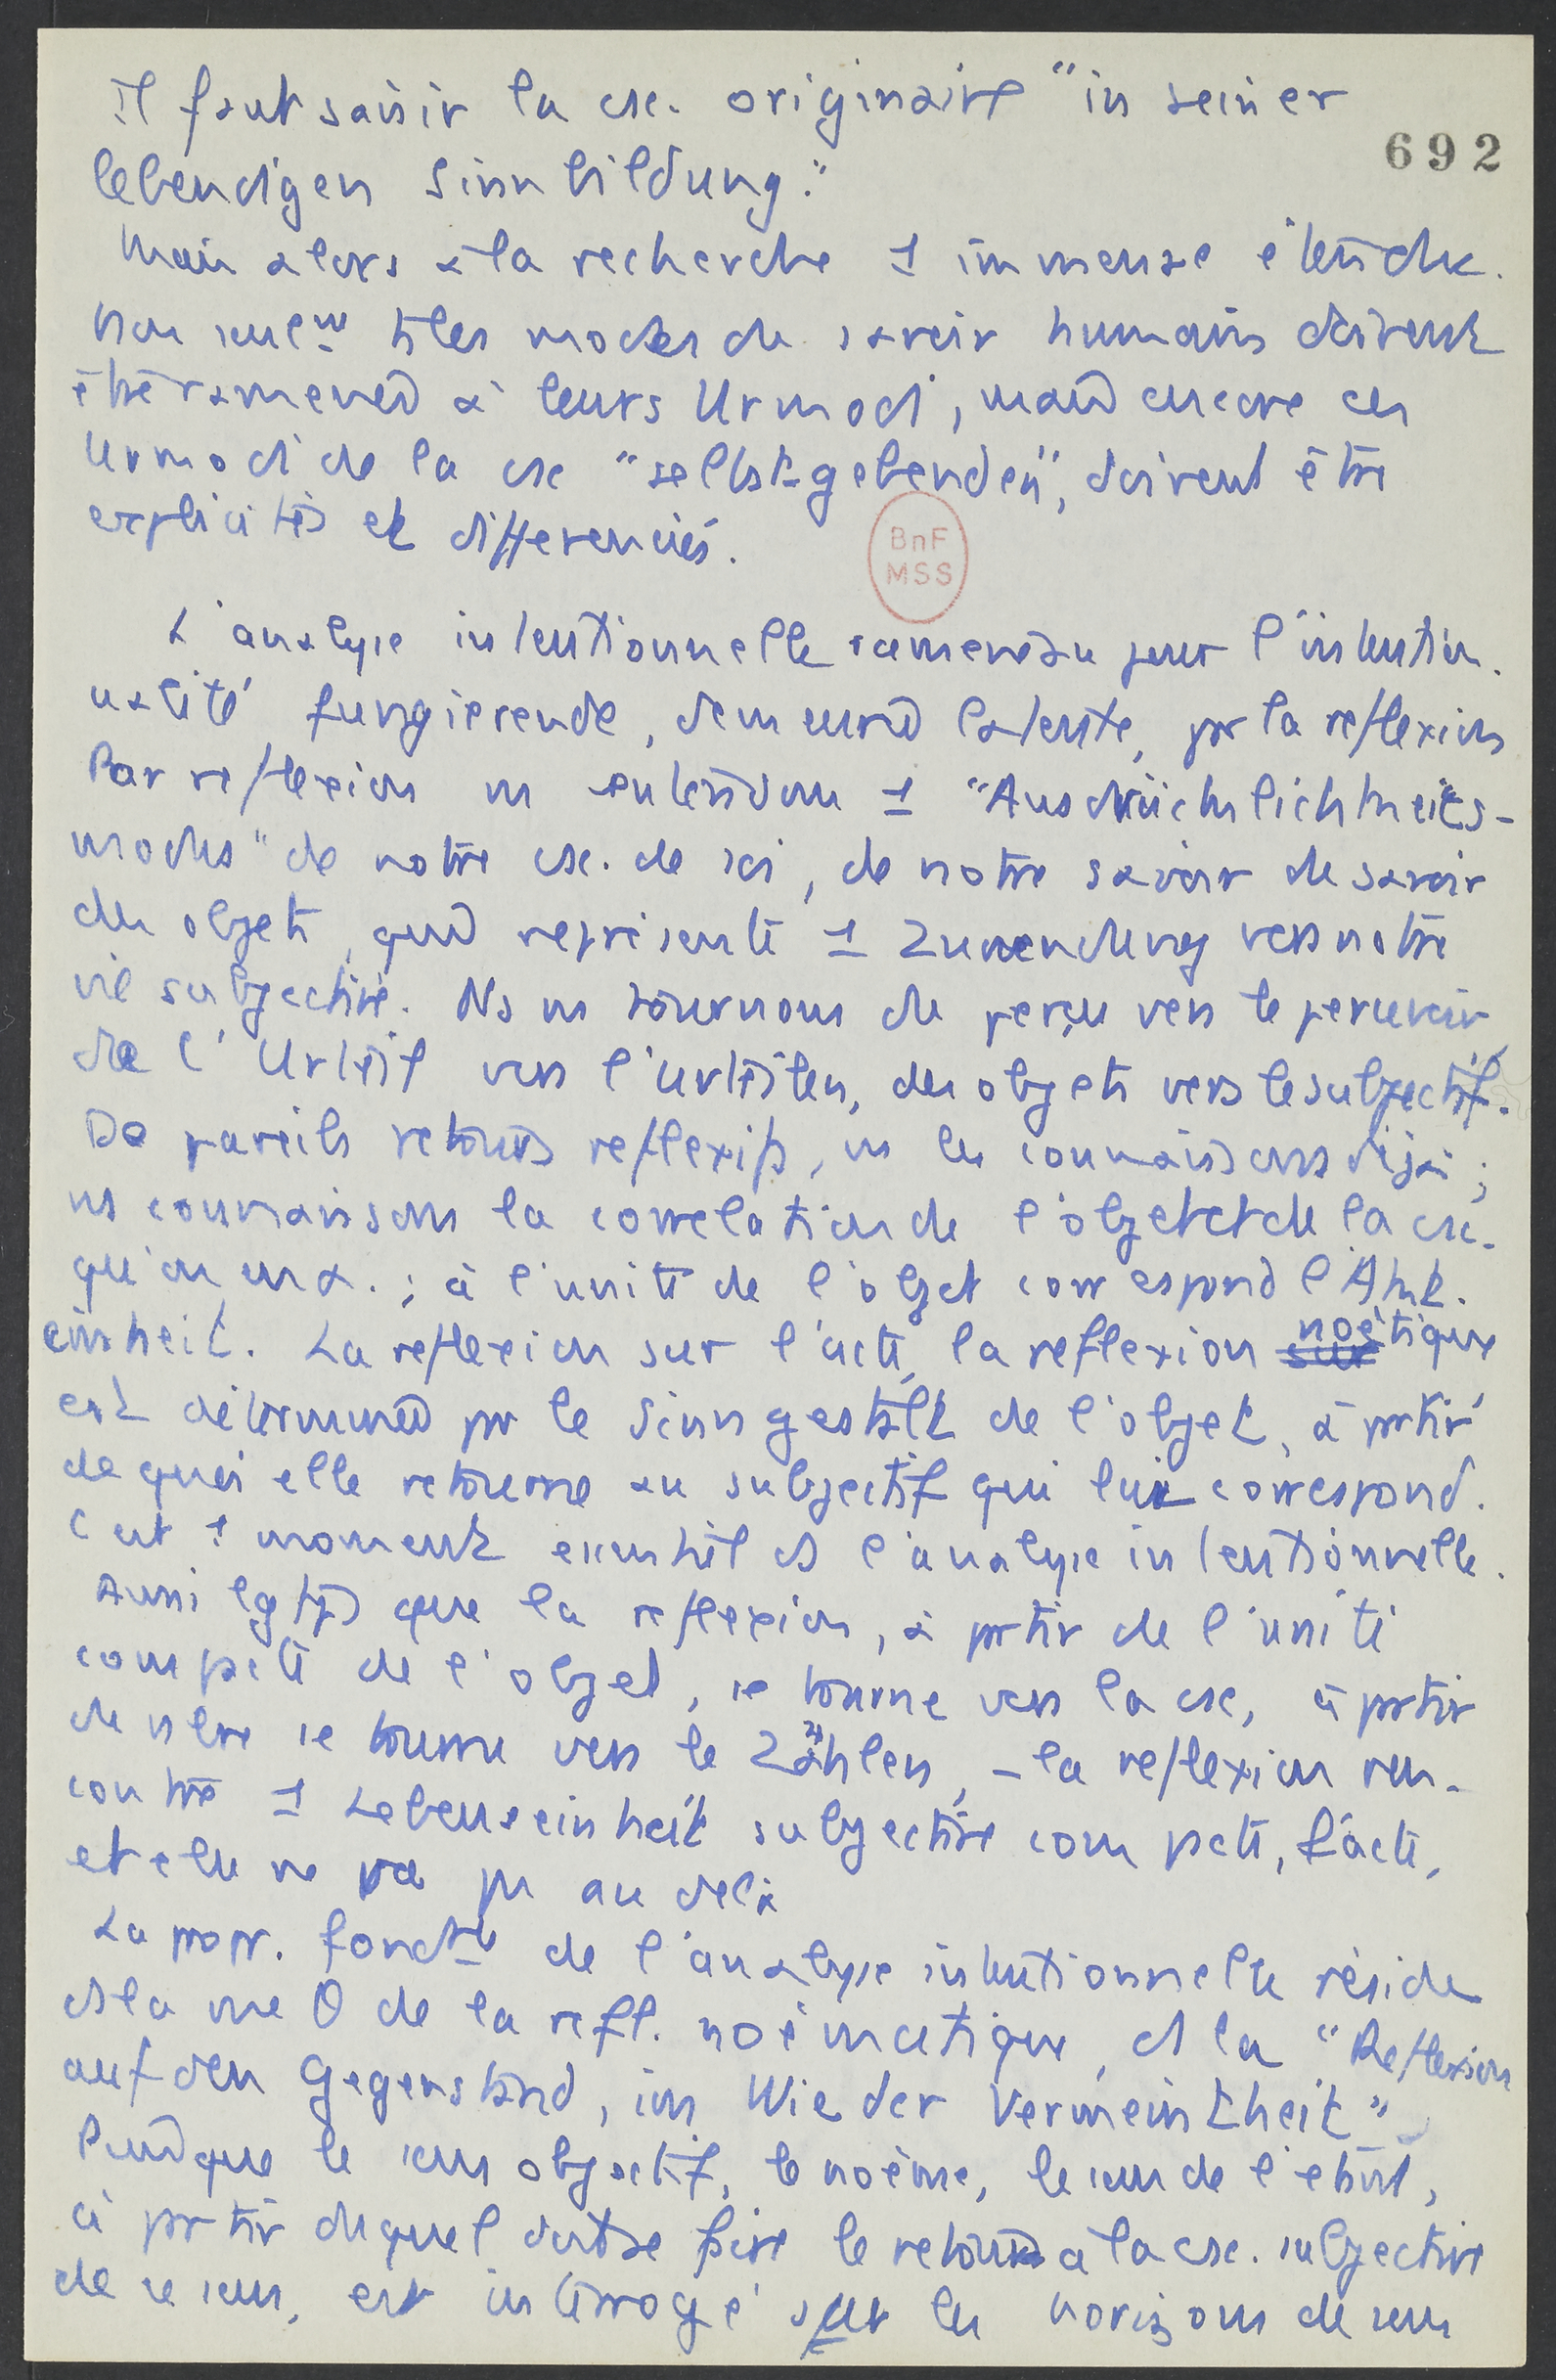 Il faut saisir la csc. originaire "in seiner
692
lebendigen Sinnbildung."
Mais alors à la recherche 1 immense étendue.
Non seulem^t ts les modes de savoir humains doivent
être ramenés à leurs Urmodi, mais encore ces
Urmodi de la csc "selbstgebenden", doivent être
explicités et differenciés.
BnF
MSS
L'analyse intentionnelle ramenée pour l'intention-
nalité fungierende, demeurée latente, pr la reflexion
Par reflexion ns entendons 1 "Ausdrücklichkeits-
modus" de notre csc. de soi, de notre savoir de savoir
des objets, qui représente 1 Zuwendung vers notre
vie subjective. Ns ns tournons du perçu vers le percevoir
de l'Urteil vers l'urteilen, des objets vers le subjectif.
De pareils retours reflexifs, ns les connaissons déjà ;
ns connaissons la correlation de l'objet et de la csc.
qu'on en a. ; à l'unité de l'objet correspond l'Akt-
einheit. La reflexion sur l'acte, la reflexion sur noétique
est déterminée pr le Sinngestalt de l'objet, à prtir
de quoi elle retourne au subjectif qui lui correspond.
C'est 1 moment essentiel ds l'analyse intentionnelle.
Aussi lgtps que la reflexion, à prtir de l'unité
compacte de l'objet, se tourne vers la csc, à prtir
du nbre se tourne vers le Zählen, – la reflexion ren-
contre 1 Lebenseinheit subjective compacte, l'acte,
et elle ne va ps au delà
La propr. fonct^n de l'analyse intentionnelle réside
ds la mé O de la refl. noématique, ds la "Reflexion
auf den Gegenstand, im Wie der Vermeintheit"
Puisque le sens objectif, le noème, le sens de l'étant,
à prtir duquel doit se faire le retour à la csc. subjective
de ce sens, est interrogé sur les horizons de sens